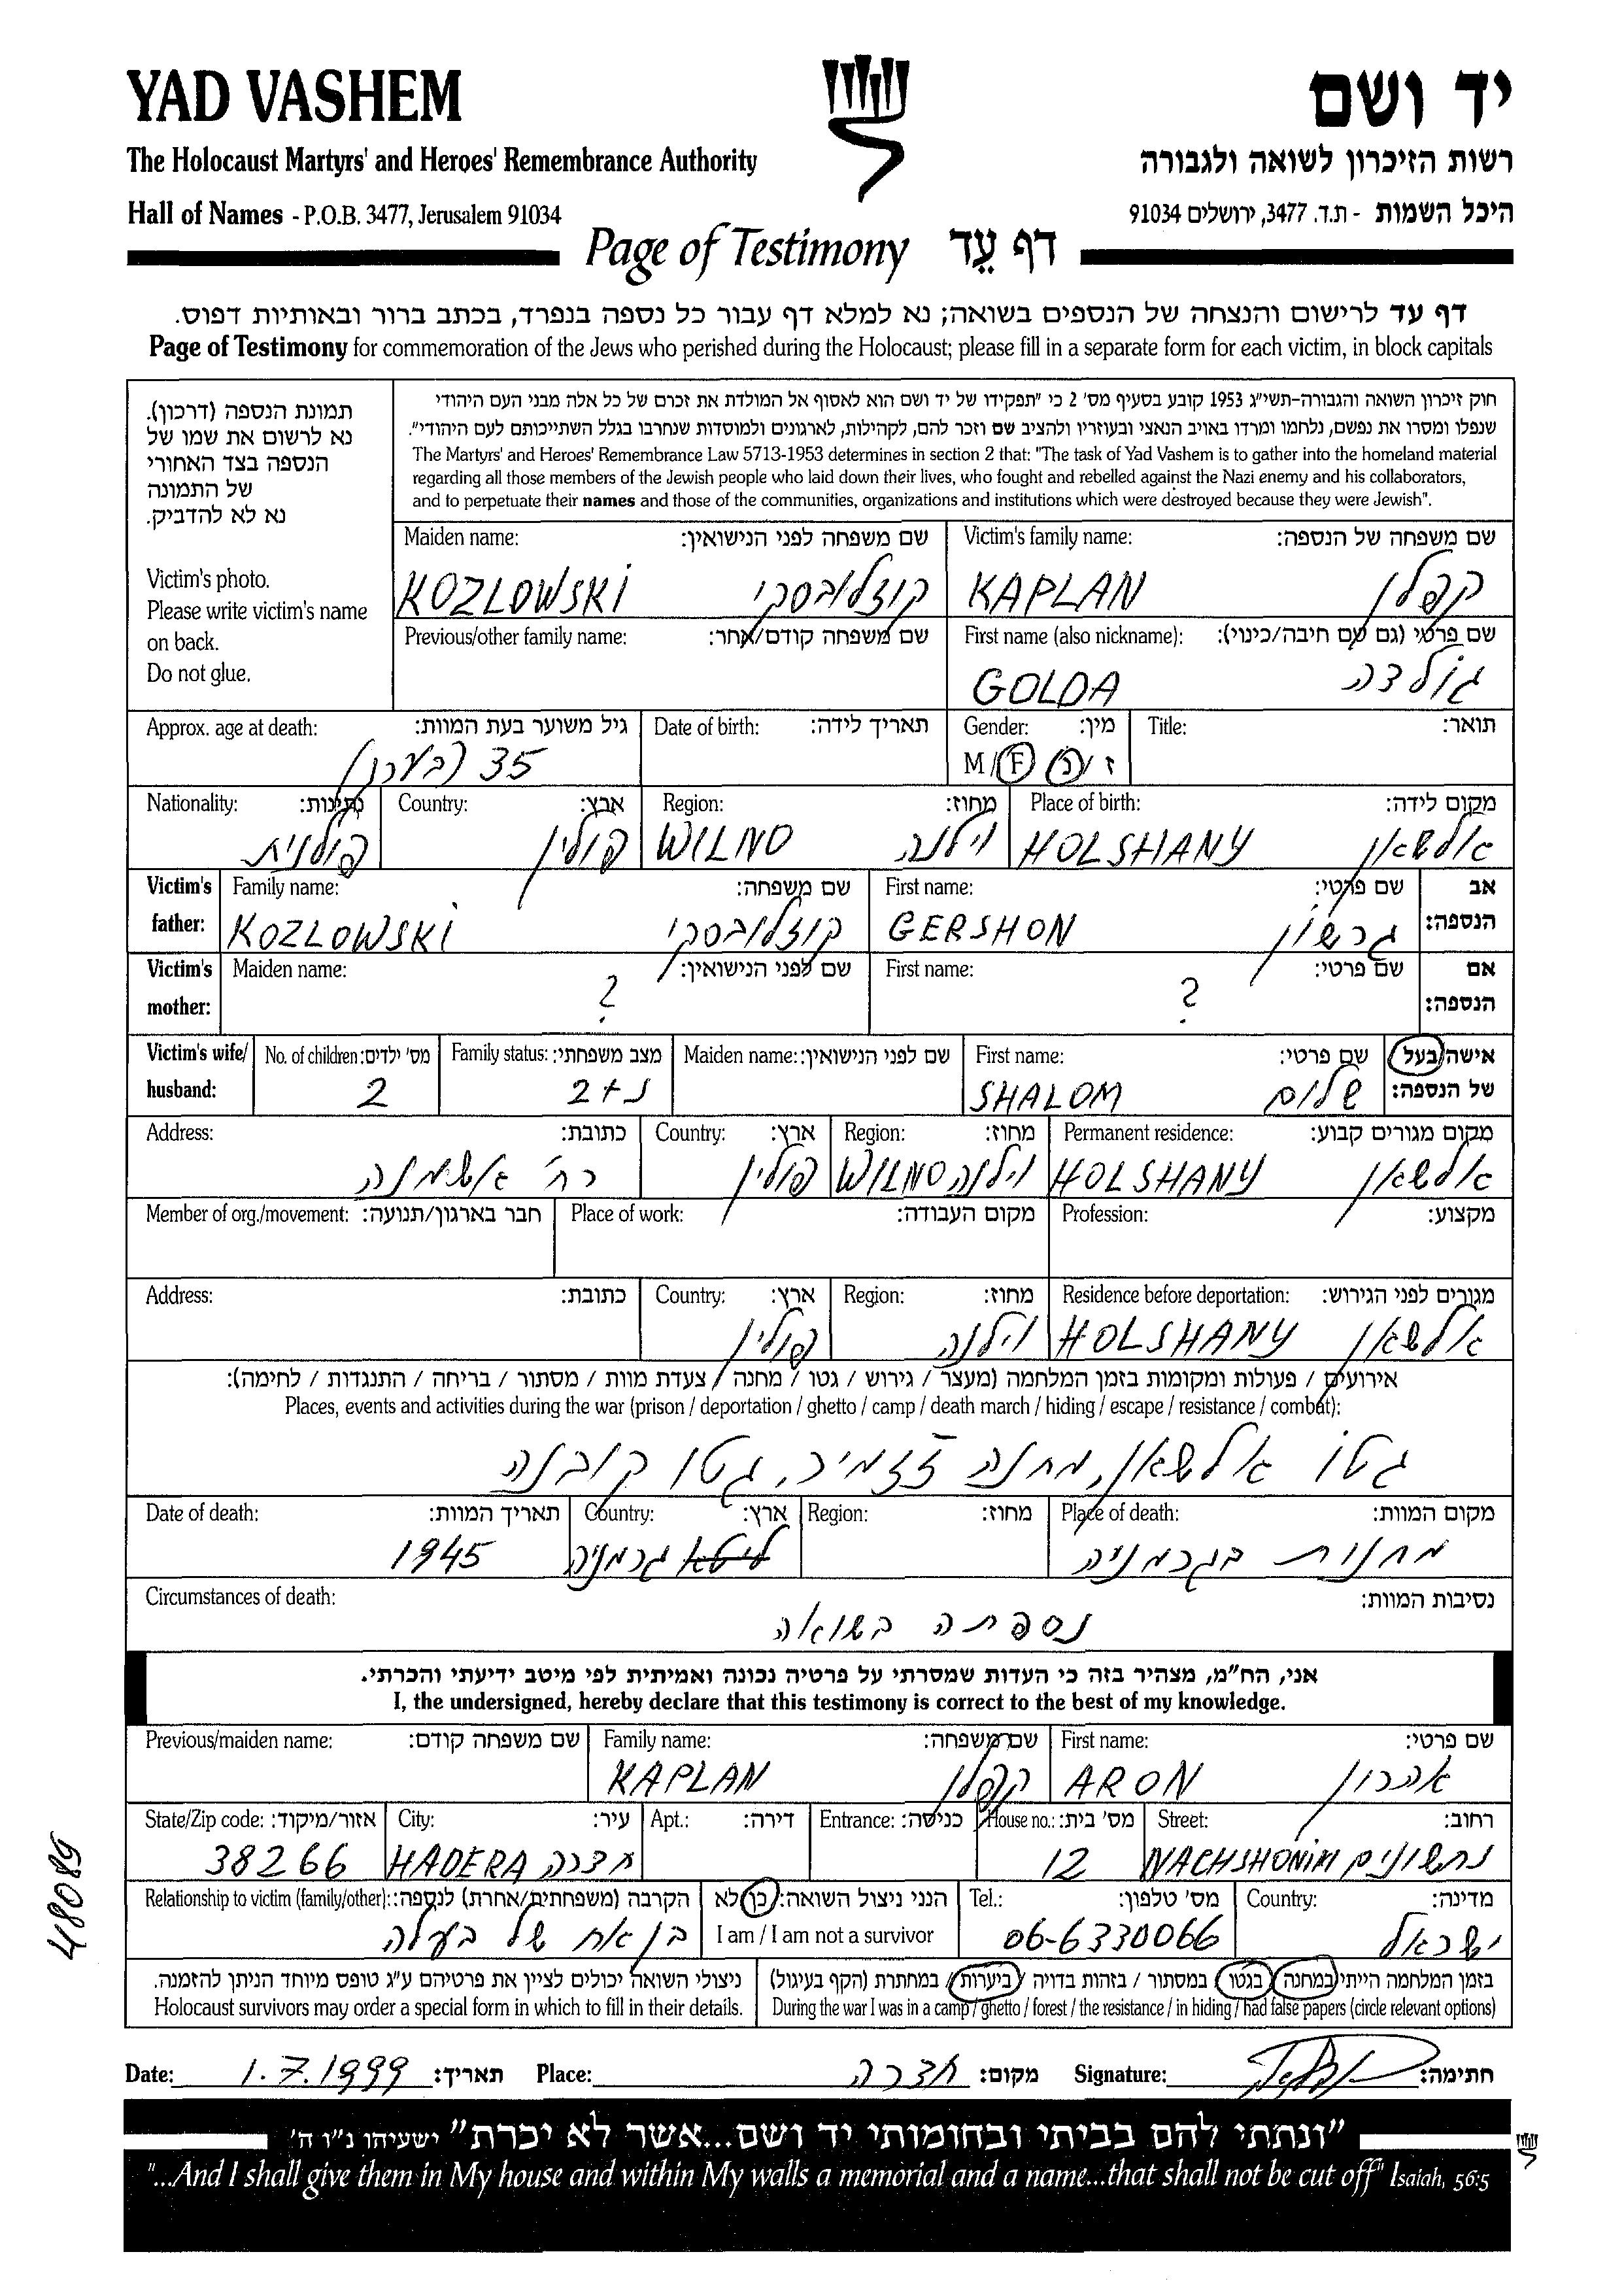 YAD VASHEM יד ושם
The Holocaust Martyrs' and Heroes' Remembrance Authority רשות הזיכרון לשואה ולגבורה
Hall of Names - P.O.B. 3477, Jerusalem 91034 היכל השמות - ת.ד. 3477, ירושלים 91034
Page of Testimony דף עֵד
דף עד לרישום והנצחה של הנספים בשואה; נא למלא דף עבור כל נספה בנפרד, בכתב ברור ובאותיות דפוס.
Page of Testimony for commemoration of the Jews who perished during the Holocaust; please fill in a separate form for each victim, in block capitals
תמונת הנספה (דרכון).
נא לרשום את שמו של
הנספה בצד האחורי
של התמונה
נא לא להדביק.
Victim's photo.
Please write victim's name
on back.
Do not glue.
חוק זיכרון השואה והגבורה-תשי"ג 1953 קובע בסעיף מס' 2 כי "תפקידו של יד ושם הוא לאסוף אל המולדת את זכרם של כל אלה מבני העם היהודי
שנפלו ומסרו את נפשם, נלחמו ומרדו באויב הנאצי ובעוזריו ולהציב שם וזכר להם, לקהילות, לארגונים ולמוסדות שנחרבו בגלל השתייכותם לעם היהודי".
The Martyrs' and Heroes' Remembrance Law 5713-1953 determines in section 2 that: "The task of Yad Vashem is to gather into the homeland material
regarding all those members of the Jewish people who laid down their lives, who fought and rebelled against the Nazi enemy and his collaborators,
and to perpetuate their names and those of the communities, organizations and institutions which were destroyed because they were Jewish".
Maiden name: שם משפחה לפני הנישואין: Victim's family name: שם משפחה של הנספה:
KOZLOWSKI קוזלובסקי KAPLAN קפלן
Previous/other family name: שם משפחה קודם/אחר: First name (also nickname): שם פרטי (גם שם חיבה/כינוי):
GOLDA גולדה
Approx. age at death: גיל משוער בעת המוות: Date of birth: תאריך לידה: Gender: מין: Title: תואר:
35 (בערך) M/F ז/נ
Nationality: נתינות: Country: ארץ: Region: מחוז: Place of birth: מקום לידה:
פולנית פולין WILNO וילנה HOLSHANY אולשאן
Victim's father: Family name: שם משפחה: First name: שם פרטי: אב הנספה:
KOZLOWSKI קוזלובסקי GERSHON גרשון
Victim's mother: Maiden name: שם לפני הנישואין: First name: שם פרטי: אם הנספה:
? ?
Victim's wife/ husband: No. of children: מס' ילדים: Family status: מצב משפחתי: Maiden name: שם לפני הנישואין: First name: שם פרטי: אישה/בעל של הנספה:
2 נ+2 SHALOM שלום
Address: כתובת: Country: ארץ: Region: מחוז: Permanent residence: מקום מגורים קבוע:
רח' אושמנה פולין WILNO וילנה HOLSHANY אולשאן
Member of org./movement: חבר בארגון/תנועה: Place of work: מקום העבודה: Profession: מקצוע:
Address: כתובת: Country: ארץ: Region: מחוז: Residence before deportation: מגורים לפני הגירוש:
פולין וילנה HOLSHANY אולשאן
אירועים / פעולות ומקומות בזמן המלחמה (מעצר / גירוש / גטו / מחנה / צעדת מוות / מסתור / בריחה / התנגדות / לחימה):
Places, events and activities during the war (prison / deportation / ghetto / camp / death march / hiding / escape / resistance / combat):
גטו אולשאן, מחנה ז'זמיר, גטו קובנה
Date of death: תאריך המוות: Country: ארץ: Region: מחוז: Place of death: מקום המוות:
1945 ליטא גרמניה מחנות בגרמניה
Circumstances of death: נסיבות המוות:
נספתה בשואה
אני, הח"מ, מצהיר בזה כי העדות שמסרתי על פרטיה נכונה ואמיתית לפי מיטב ידיעתי והכרתי.
I, the undersigned, hereby declare that this testimony is correct to the best of my knowledge.
Previous/maiden name: שם משפחה קודם: Family name: שם משפחה: First name: שם פרטי:
KAPLAN קפלן ARON אהרון
State/Zip code: אזור/מיקוד: City: עיר: Apt.: דירה: Entrance: כניסה: House no.: מס' בית: Street: רחוב:
38266 HADERA חדרה 12 NACHSHONIM נחשונים
Relationship to victim (family/other): הקרבה (משפחתית/אחרת) לנספה: הנני ניצול השואה: כן/לא Tel.: מס' טלפון: Country: מדינה:
בן אח של בעלה I am / I am not a survivor 06-6330066 ישראל
ניצולי השואה יכולים לציין את פרטיהם ע"ג טופס מיוחד הניתן להזמנה. בזמן המלחמה הייתי במחנה/בגטו / במסתור / בזהות בדויה /ביערות/ במחתרת (הקף בעיגול)
Holocaust survivors may order a special form in which to fill in their details. During the war I was in a camp / ghetto / forest / the resistance / in hiding / had false papers (circle relevant options)
48089
Date: 1.7.1999 תאריך: Place: חדרה מקום: Signature: חתימה:
"ונתתי להם בביתי ובחומותי יד ושם...אשר לא יכרת" ישעיהו נ"ו ה'
"...And I shall give them in My house and within My walls a memorial and a name...that shall not be cut off" Isaiah, 56:5